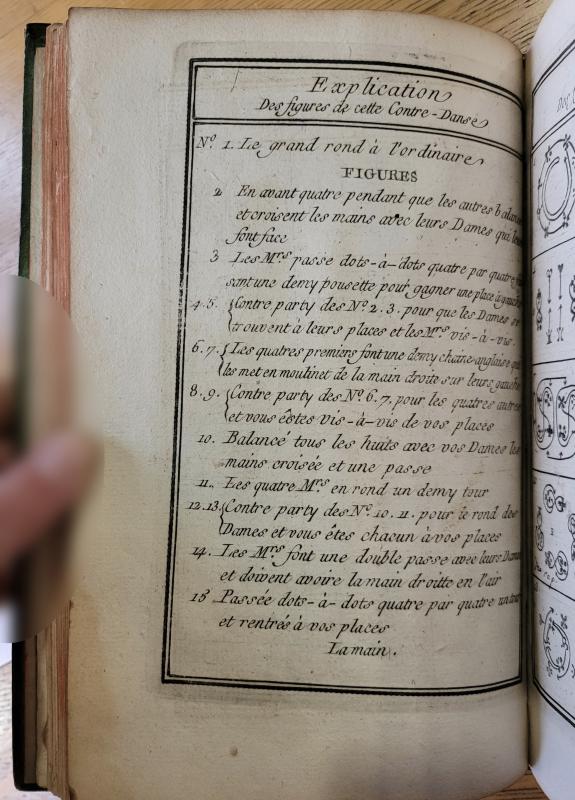 Explication
Des figures de cette Contre-Danse
Nº 1. Le grand rond à l'ordinaire
FIGURES
2 En avant quatre pendant que les autres
et croisent les mains avec leurs Dames qui
font face
3 Les Mrs passe dots-à-dots quatre par quatre
sant une demy pousette pour gagner une place à
4.5. Contre party des Nº 2.3. pour que les Dames
trouvent à leurs places et les Mrs vis-à-vis.
6.7. Les quatres premiers font une demy chaine anglaise
les met en moulinet de la main droite sur leurs
8.9. Contre party des Nº 6.7. pour les quatres autres
et vous êstes vis-à-vis de vos places
10. Balancé tous les huits avec vos Dames les
mains croisée et une passe
11. Les quatre Mrs en rond un demy tour
12.13. Contre party des Nº 10.11. pour le rond des
Dames et vous êtes chacun à vos places
14. Les Mrs font une double passe avec leurs Dames
et doivent avoire la main droitte en l'air
15 Passée dots-à-dots quatre par quatre un
et rentrés à vos places
La main.